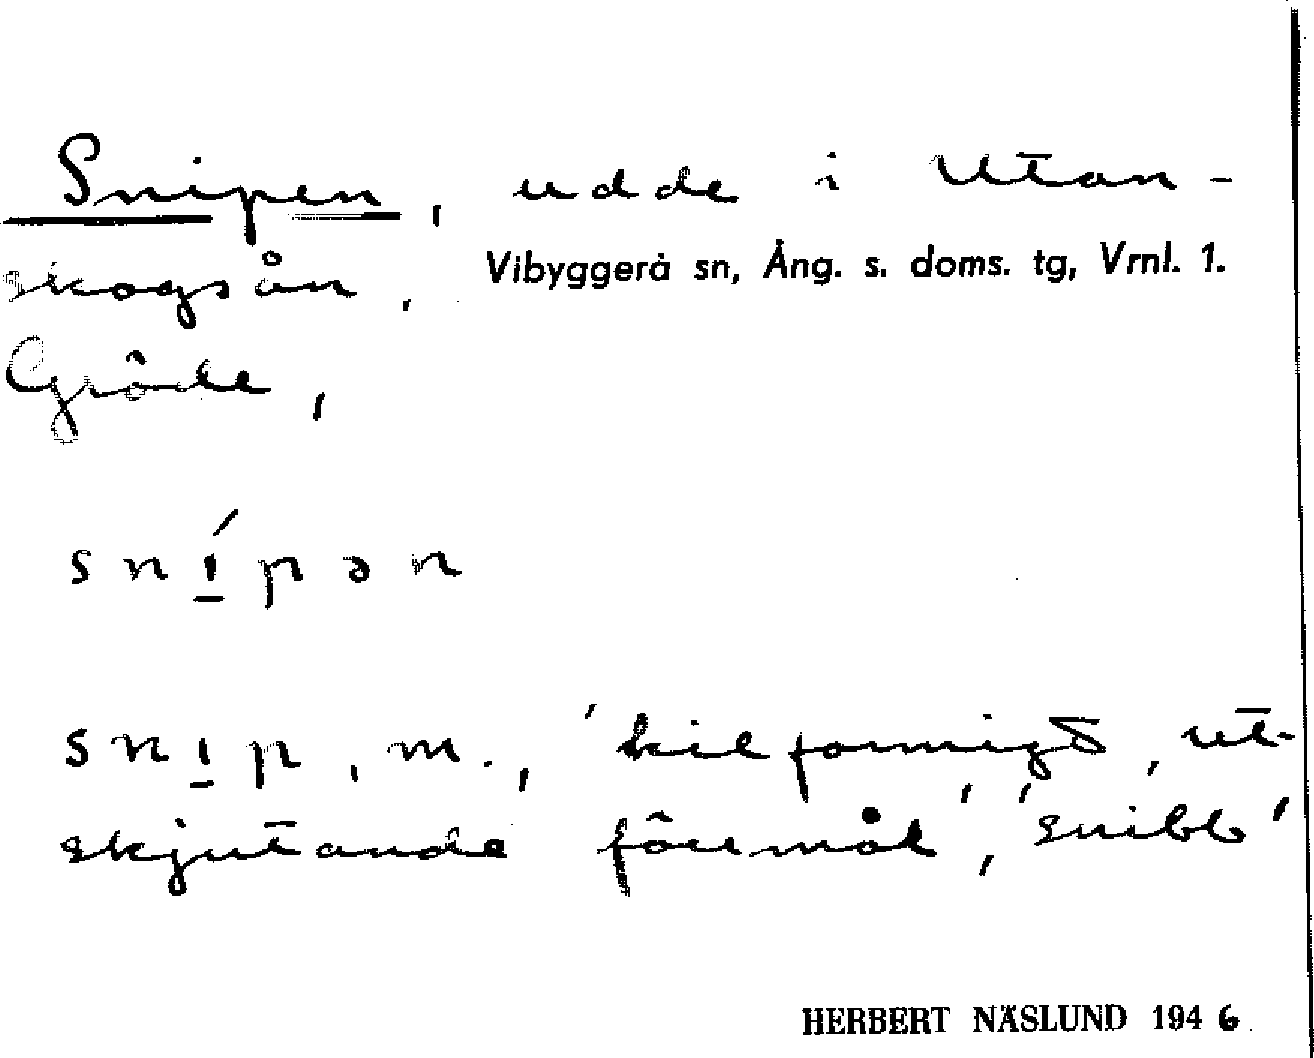 Snipen, udde i Utan-
skogsån, Vibyggerå sn, Ång. s. doms. tg, Vrnl. 1.
Gröde,
snı̱́pən
snı̱p, m., 'kilformigt, ut-
skjutande föremål', 'snibb'
HERBERT NÄSLUND 1946